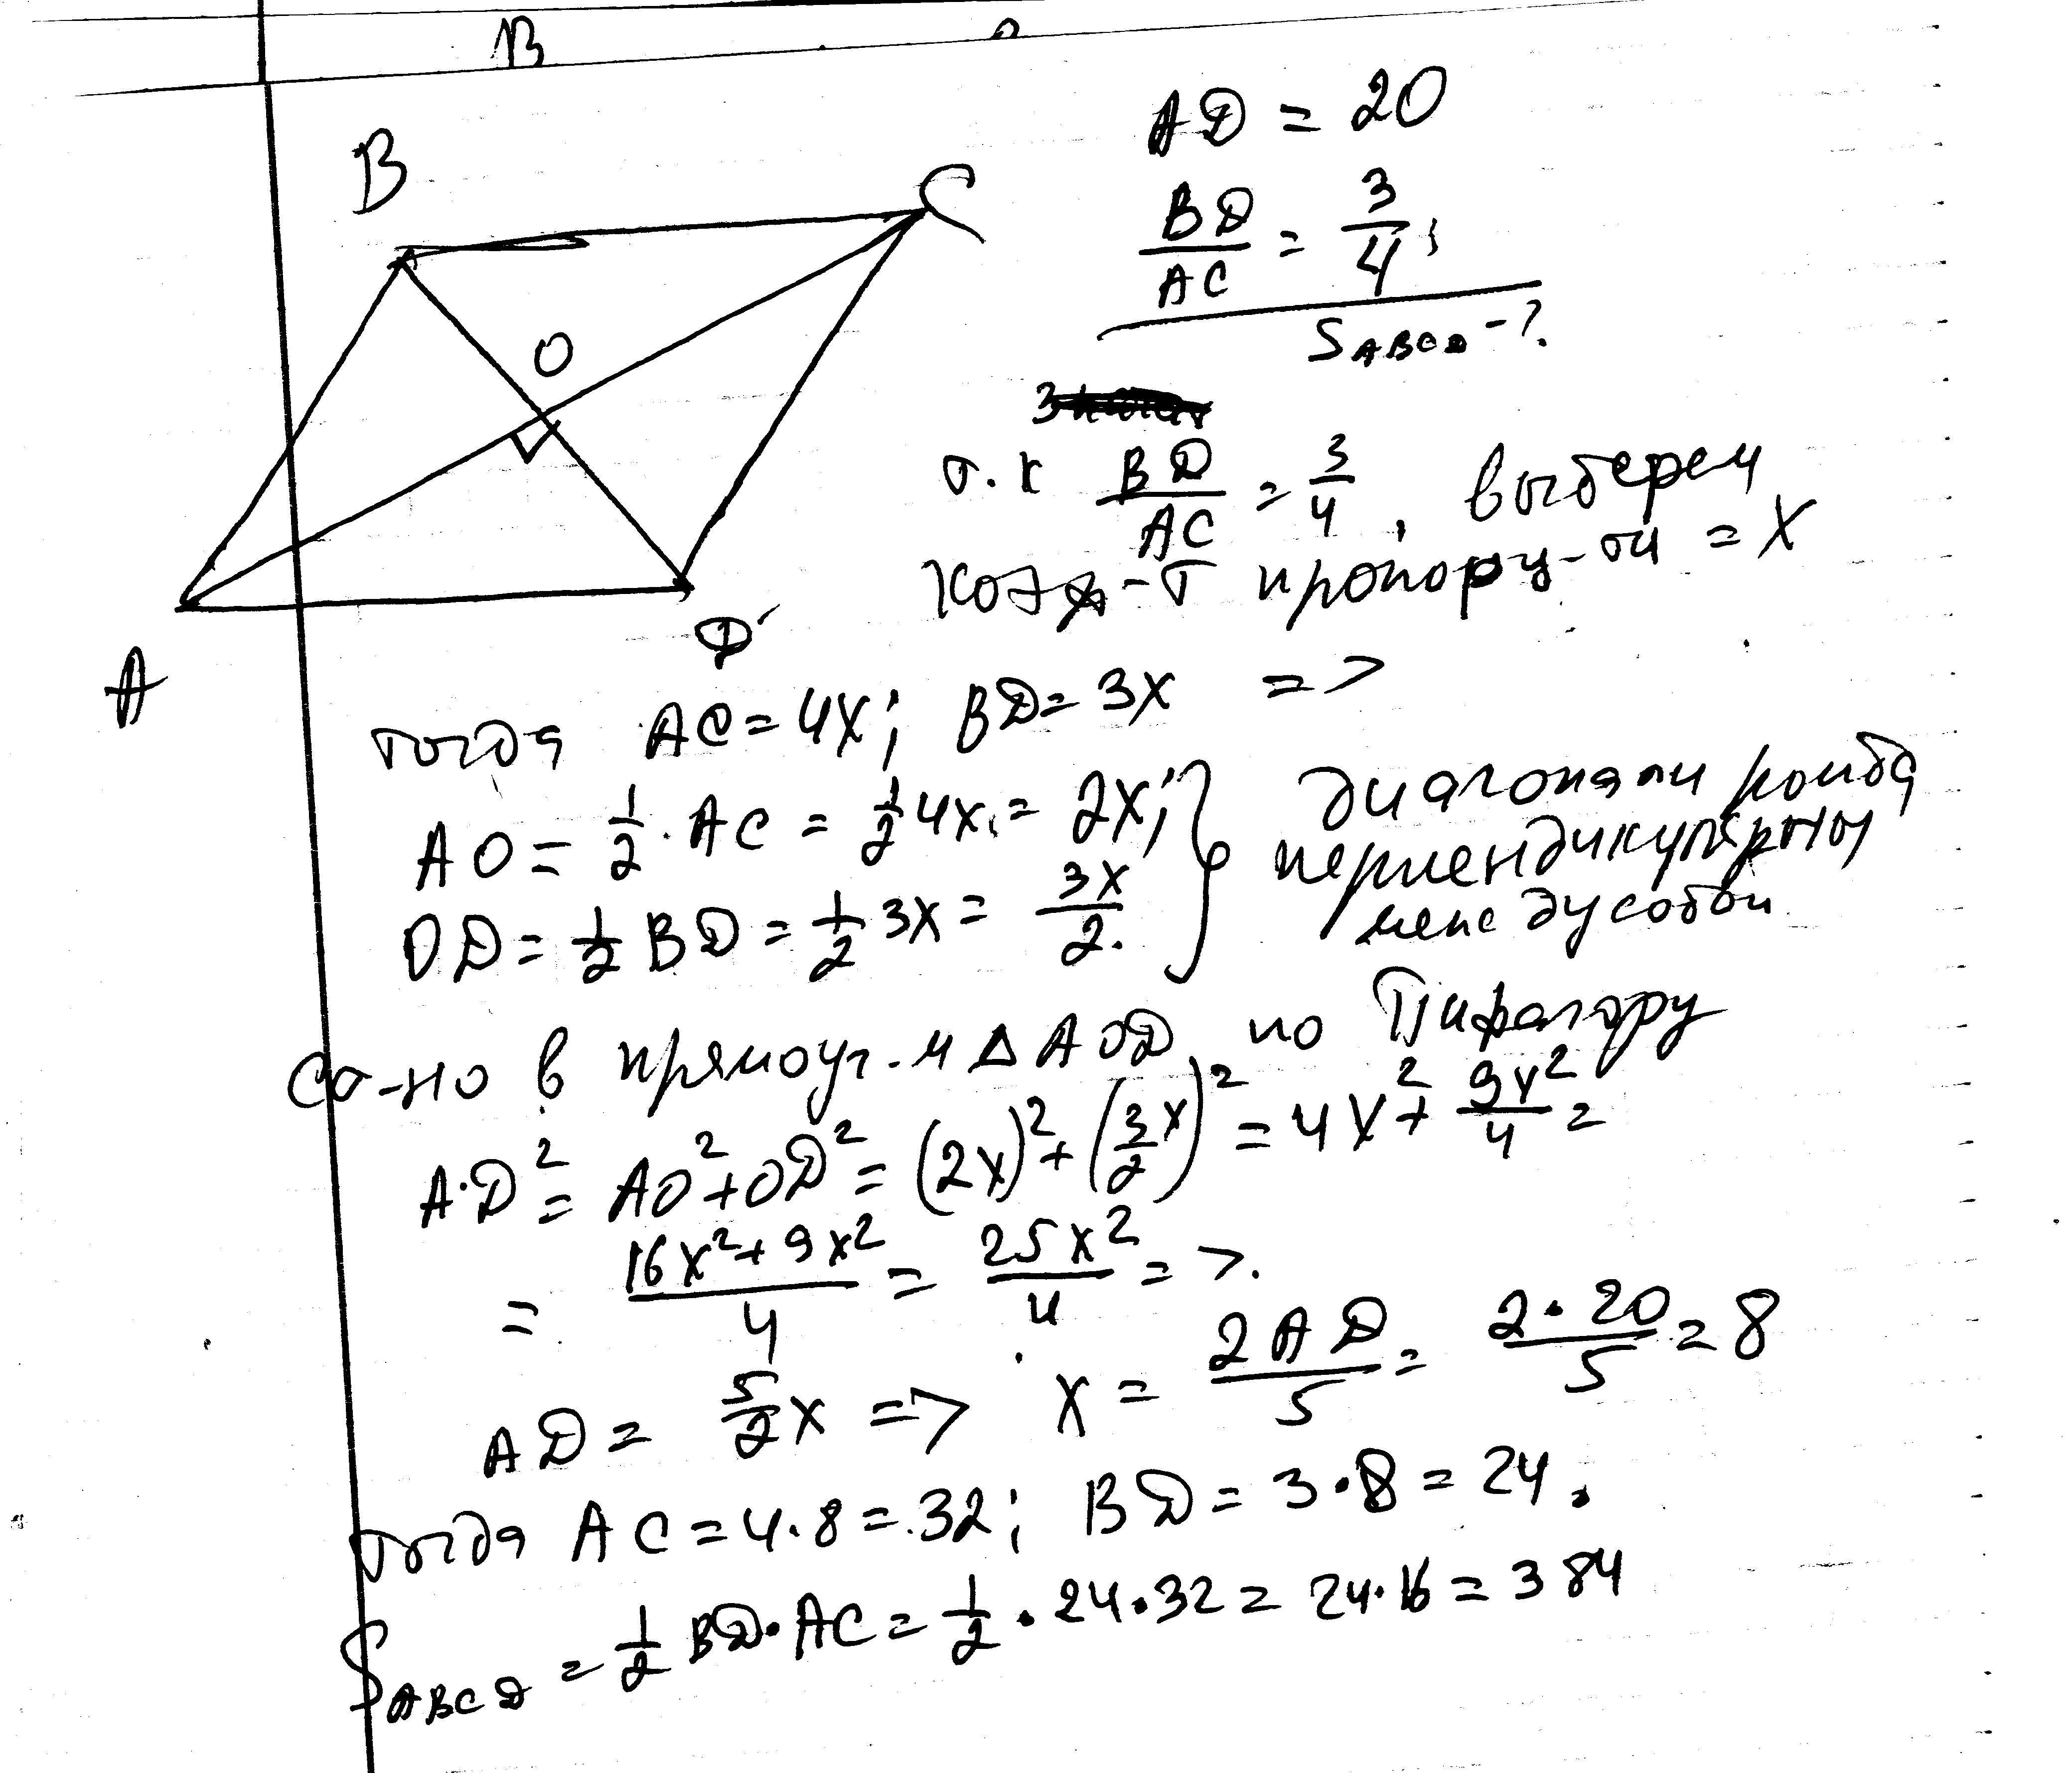 B
B
C
O
A
D
AD = 20
BD/AC = 3/4;
S ABCD - ?
т.к BD/AC = 3/4, выберем
коэф-т пропорц-ти = x
тогда AC = 4x; BD = 3x =>
AO = 1/2 · AC = 1/2 4x = 2x; } диагонали ромба
OD = 1/2 BD = 1/2 3x = 3x/2. перпендикулярны
между собой
со-но в прямоуг.-м △ AOD по Пифагору
AD² = AO² + OD² = (2x)² + (3/2 x)² = 4x² + 9x²/4 =
= 16x² + 9x²/4 = 25x²/4 =>
AD = 5/2 x => x = 2AD/5 = 2·20/5 = 8
тогда AC = 4·8 = 32; BD = 3·8 = 24.
S ABCD = 1/2 BD·AC = 1/2 · 24·32 = 24·16 = 384